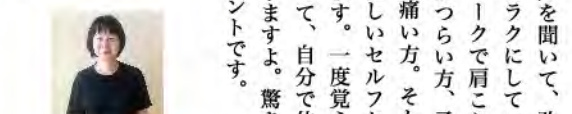 を聞いて、
ラクにして
ークで肩こ
つらい方、
痛い方。そ
しいセルフ
す。一度覚
て、自分で
ますよ。驚
ントです。